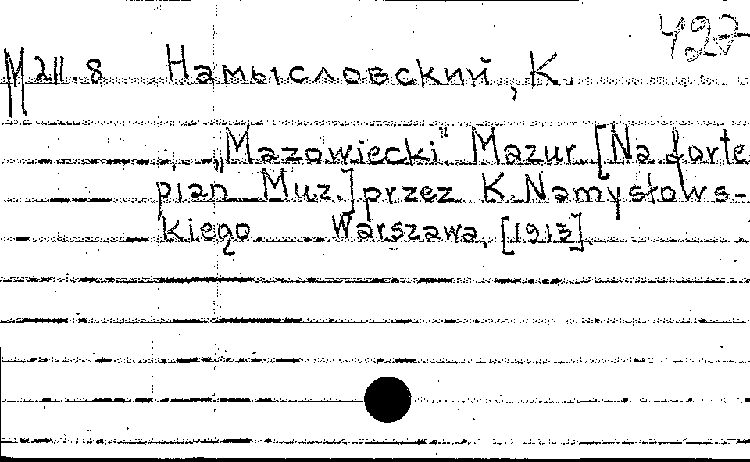 427
М 211.8 Намысловский, К.
„Mazowiecki" Mazur [Na forte
pian Muz.] przez K. Namysłows-
kiego Warszawa, [1913].